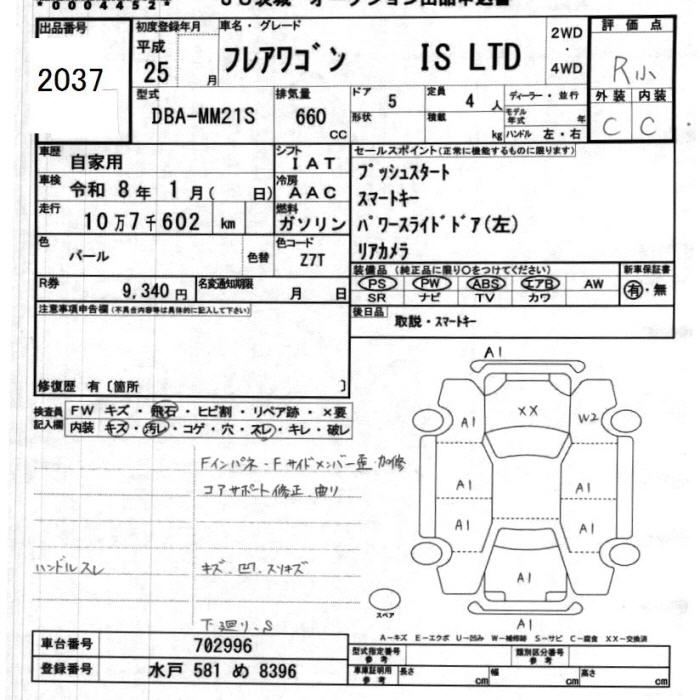 *0004452*
JU茨城 オークション出品申込書
出品番号
2037
初度登録年月
平成
25 月
車名・グレード
フレアワゴン IS LTD
2WD
・
4WD
評価点
R小
外装 内装
C C
型式
DBA-MM21S
排気量
660
CC
ドア 5
定員 4 人
ディーラー・並行
形状
積載 kg
モデル年式 年
ハンドル 左・右
車歴
自家用
シフト
IAT
セールスポイント(正常に機能するものに限ります)
プッシュスタート
スマートキー
パワースライドドア(左)
リアカメラ
車検
令和 8年 1月( 日)
冷房
AAC
走行
10万7千602 km
燃料
ガソリン
色
パール
色替
色コード
Z7T
装備品(純正品に限り○をつけてください)
PS PW ABS エアB AW
SR ナビ TV カワ
新車保証書
有・無
R券
9,340円
名変通知期限
月 日
後日品
取説・スマートキー
注意事項申告欄(不具合内容等は具体的に記入して下さい)
修復歴 有〔箇所 〕
検査員
記入欄
FW キズ・飛石・ヒビ割・リペア跡・×要
内装 キズ・汚レ・コゲ・穴・スレ・キレ・破レ
Fインパネ・Fサイドメンバー歪・加修
コアサポート修正、曲り
ハンドルスレ
キズ、凹、スリキズ
下廻り、S
A1
A1
XX
W2
A1
A1
A1
A1
A1
A1
スペア
A-キズ E-エクボ U-凹み W-補修跡 S-サビ C-腐食 XX-交換済
車台番号
702996
登録番号
水戸 581 め 8396
型式指定番号
参考
類別区分番号
参考
車庫証明用
参考
長さ cm
幅 cm
高さ cm